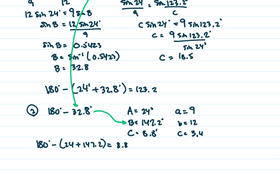 9 12
sin 24° sin 123.2°
12 sin 24° = 9 sin B
c sin 24° = 9 sin 123.2°
sin B = 12 sin 24° / 9
c = 9 sin 123.2° / sin 24°
sin B = 0.5423
B = sin⁻¹ (0.5423)
c = 18.5
B = 32.8
180° - (24° + 32.8° = 123.2
② 180° - 32.8° A = 24° a = 9
B = 147.2° b = 12
180° - (24 + 147.2) = 8.8 C = 8.8° c = 3.4